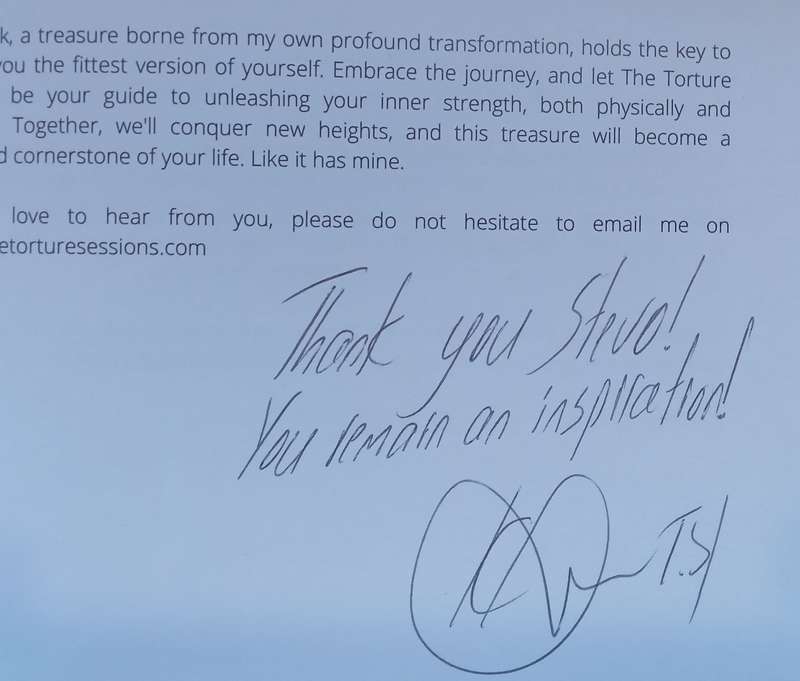 k, a treasure borne from my own profound transformation, holds the key to
you the fittest version of yourself. Embrace the journey, and let The Torture
be your guide to unleashing your inner strength, both physically and
Together, we'll conquer new heights, and this treasure will become a
d cornerstone of your life. Like it has mine.
love to hear from you, please do not hesitate to email me on
etorturesessions.com
Thank you Stevo!
You remain an inspiration!
T.S